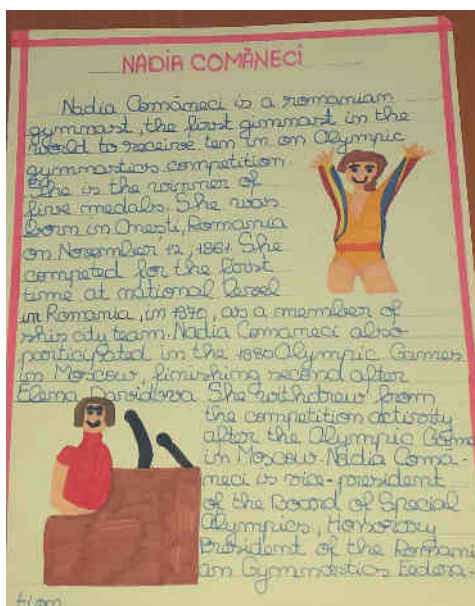 NADIA COMĂNECI
Nadia Comăneci is a romanian
gymnast, the first gimnast in the
world to receive ten in on Olympic
gymnastics competition.
She is the winner of
five medals. She was
born in Onești, Romania
on November 12, 1961. She
competed for the first
time at national level
in Romania, in 1970, as a member of
his city team. Nadia Comaneci also
participated in the 1980 Olympic Games
in Moscow, finishing second after
Elena Davidova. She withdrew from
the competition activity
after the Olympic Game
in Moscow. Nadia Coma-
neci is vice-president
of the Board of Special
Olympics, Honorary
President of the Romani
an Gymnastics Federa-
tion